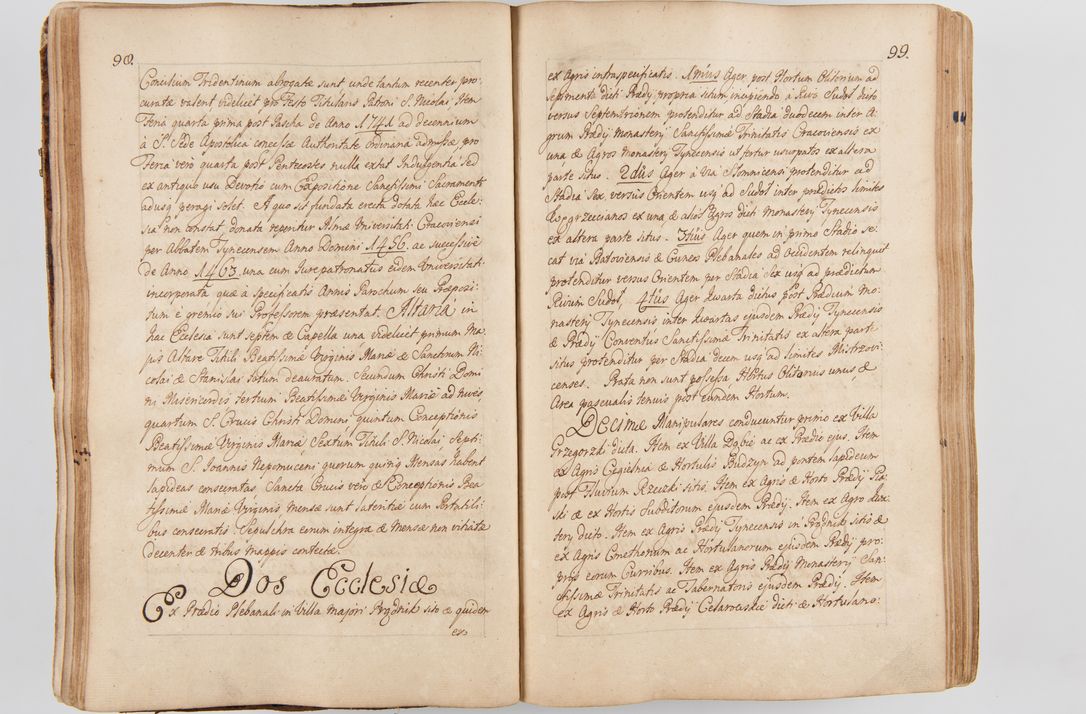 98.
Concilium Tridentinum abrogatæ sunt unde tantum recenter pro:
curatæ valent videlicet pro Festo Titularis Patroni S. Nicolai, Item
Feria quarta prima post Pascha de Anno 1741 ad decennium
à S. Sede Apostolica concessæ Authoritate Ordinaria admissæ pro
Feria verò quarta post Pentecostes nulla extat Indulgentia sed
ex antiquo usu Devotio cum Expositione Sanctissimi Sacramenti
adusq peragi solet. A quo sit fundata erecta dotata hæc Eccle:
sia non constat, donata reperitur Almæ Universitati Cracoviensi
per Abbatem Tynecensem Anno Domini 1456. ac successivè
de Anno 1463 una cum Jurepatronatus eidem Universitati
incorporata quæ à specificatis Annis Parochum seu Præposi:
tum è grémio sui Professorem præsentat. Altaria in
hac Ecclesia sunt septem & Capella una videlicet primum Ma:
jus Altare Tituli Beatissimæ Virginis Mariæ & Sanctorum Ni:
colai & Stanislai totum deauratum. Secundum Christi Domi
ni Misericordis tertium Beatissimæ Virginis Mariæ ad nives,
quartum S. Crucis Christi Domini quintum Conceptionis
Beatissimæ Virginis Mariæ, Sextum Tituli S. Nicolai, Septi:
mum S. Joannis Nepomuceni quorum quinq Mensas habent
lapideas consecratas, Sanctæ Crucis verò & Conceptionis Bea
tissimæ Mariæ Virginis mensæ sunt lateritiæ cum Portatili:
bus consecratis: Sepulchra eorum integra & Mensæ non vitiatæ
decenter & tribus mappis contectæ.
Dos Ecclesiæ
Ex Prædio Plebanali in Villa majori Prądnik sito & quidem
ex
99.
ex Agris infraspecificatis. 1mus Ager post Hortum Olitorium ad
sepimenta dicti Prædij propriæ situm incipiendo à Rivo Sudoł dicto
versus Septemtrionem protenditur ad Stadia duodecem inter A:
grum Prædij Monasterij Sanctissimæ Trinitatis Cracoviensis ex
una, & Agros Monasterij Tynecensis ut fertur usurpatos ex altera
parte situs. 2dus Ager à Via Słomnicensi protenditur ad
Stadia Sex versus Orientem usq ad Sudoł inter prædictos limites
ex una, & alios Agros dicti Monasterij Tynecensis
ex altera parte situs. 3tius Ager quem in primo Stadio se:
cat via Batoviensis & Cunes Plebanales ad Occidentem relinquit
protenditur versus Orientem per Stadia Sex usq ad prædictum
Rivum Sudoł, 4tus Ager Kwarta dictus post Prædium Mo:
nasterij Tynecensis inter Kwartas ejusdem Prædij Tynecensis
& Prædij Conventus Sanctissimæ Trinitatis ex altera parte
situs protenditur per Stadia decem usq ad limites Mistrzovi:
censes. Prata non sunt possessa Hortus Olitorius unus, &
Area pascualis tenuis post eundem Hortum.
Decimæ Manipulares conducuntur primo ex Villa
Grzegorzki dicta. Item ex Villa Dąbie ac ex Prædio ejus. Item
ex Agris Cegielnia & Hortulis Budzyn ad pontem lapideum
post Fluvium Rzeczki sitis. Item ex Agris & Horto Prædij Pia:
ski & ex Hortis Subditorum ejusdem Prædij. Item ex Agro
dicto. Item ex Agris Prædij Tynecensis in Prądnik sitis &
ex Agris Cmethonum ac Hortulanorum ejusdem Prædij pro:
prijs eorum Curribus. Item ex Agris Prædij Monasterij San:
ctissimæ Trinitatis ac Tabernatoris ejusdem Prædij. Item
ex Agris & Horto Prædij Celarowskie dicti & Hortulano: